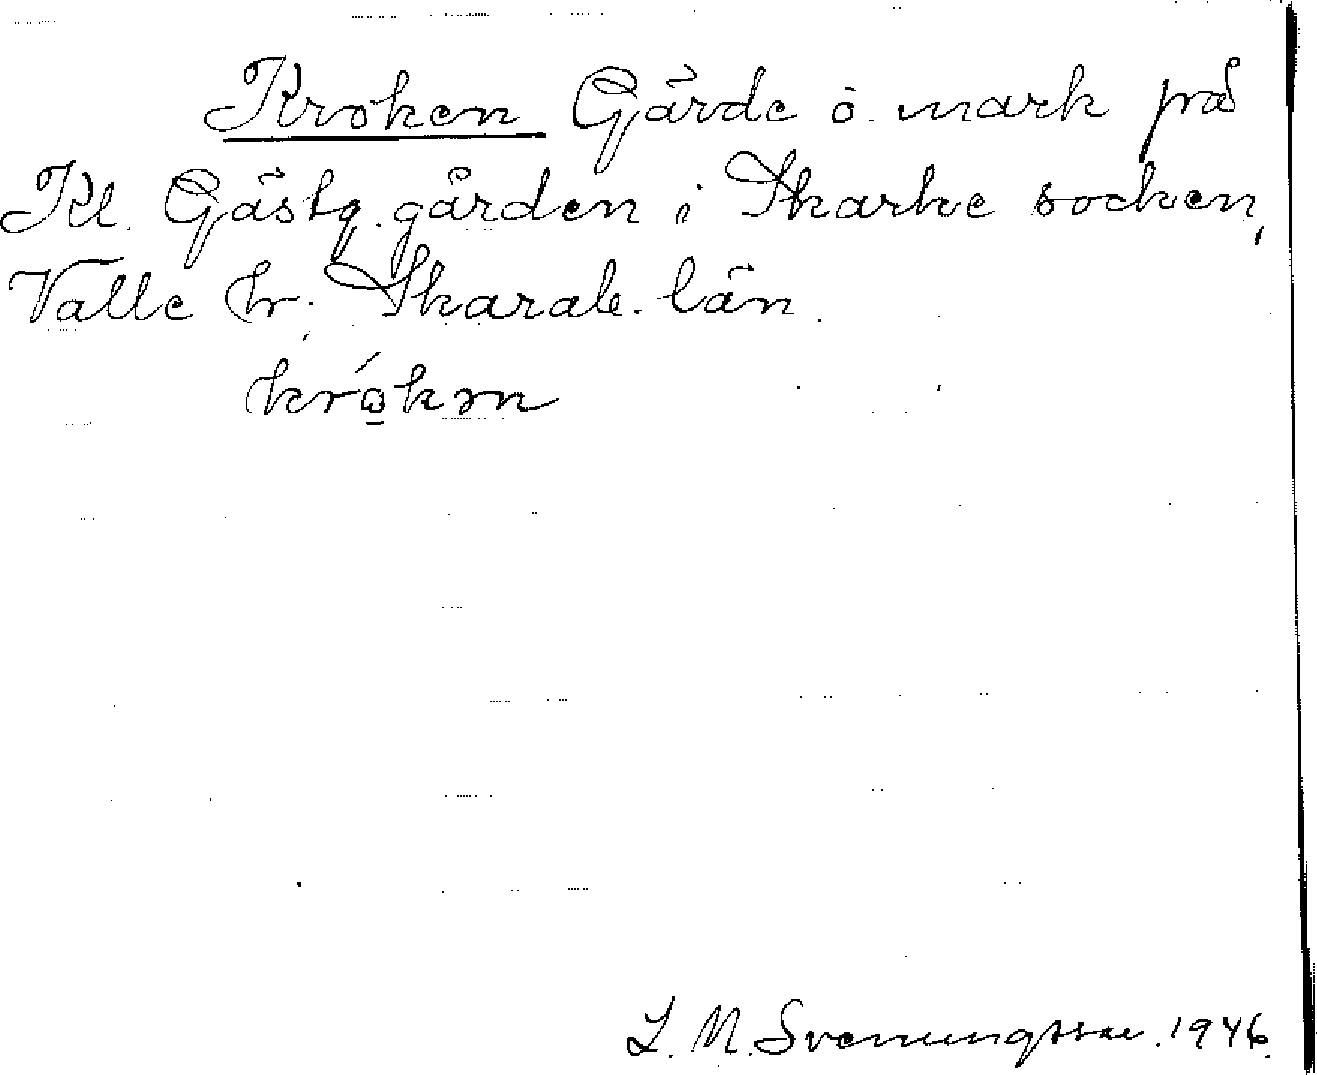 Kroken Gärde o. mark på
Kl. Gästg. gården i Skarke socken,
Valle hr; Skarab. län.
krókən
L. M. Svenungsson. 1946.